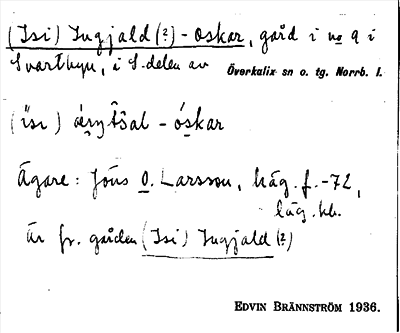 (Isi) Ingjald (?) - Oskar, gård i no 9 i
Svartbyn, i S. delen av Överkalix sn o. tg. Norrb. l.
Ägare: Jöns O. Larsson, häg. f. -72,
läg. hb.
Är fr. gården (Isi) Ingjald (?)
EDVIN BRÄNNSTRÖM 1936.